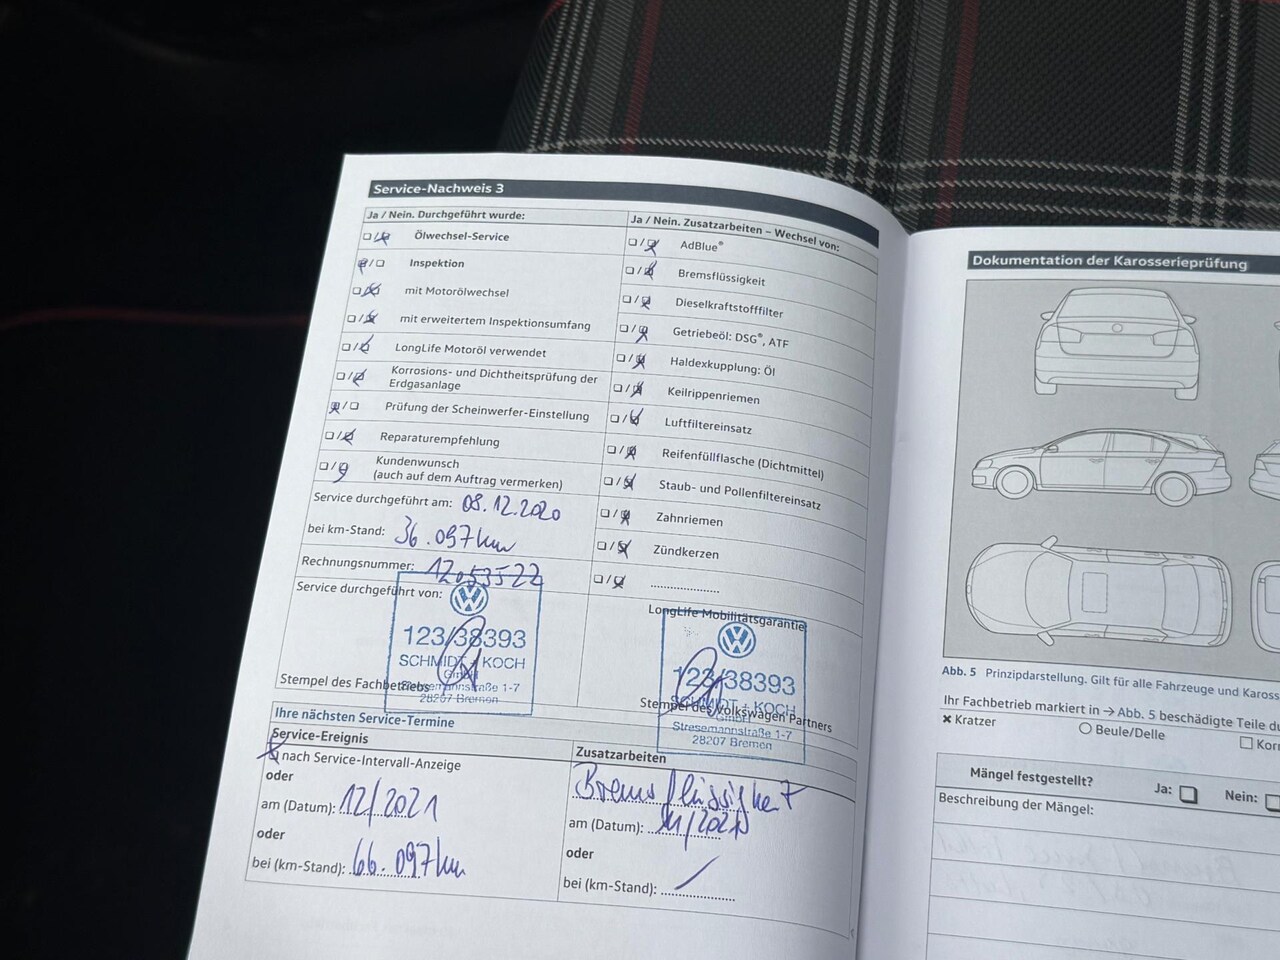 Service-Nachweis 3
Ja / Nein. Durchgeführt wurde:
Ölwechsel-Service
Inspektion
mit Motorölwechsel
mit erweitertem Inspektionsumfang
LongLife Motoröl verwendet
Korrosions- und Dichtheitsprüfung der
Erdgasanlage
Prüfung der Scheinwerfer-Einstellung
Reparaturempfehlung
Kundenwunsch
(auch auf dem Auftrag vermerken)
Service durchgeführt am: 08.12.2020
bei km-Stand: 36.097km
Rechnungsnummer: 12053522
Service durchgeführt von:
123/38393
SCHMIDT + KOCH
GmbH
Stresemannstraße 1-7
28207 Bremen
Stempel des Fachbetriebs
Ja / Nein. Zusatzarbeiten – Wechsel von:
AdBlue®
Bremsflüssigkeit
Dieselkraftstofffilter
Getriebeöl: DSG®, ATF
Haldexkupplung: Öl
Keilrippenriemen
Luftfiltereinsatz
Reifenfüllflasche (Dichtmittel)
Staub- und Pollenfiltereinsatz
Zahnriemen
Zündkerzen
LongLife Mobilitätsgarantie
123/38393
SCHMIDT + KOCH
GmbH
Stresemannstraße 1-7
28207 Bremen
Stempel des Volkswagen Partners
Ihre nächsten Service-Termine
Service-Ereignis
nach Service-Intervall-Anzeige
oder
am (Datum): 12/2021
oder
bei (km-Stand): 66.097km
Zusatzarbeiten
Bremsflüssigkeit
am (Datum):
oder
bei (km-Stand):
Dokumentation der Karosserieprüfung
Abb. 5 Prinzipdarstellung. Gilt für alle Fahrzeuge und Kaross
Ihr Fachbetrieb markiert in → Abb. 5 beschädigte Teile du
Kratzer
Beule/Delle
Korr
Mängel festgestellt? Ja: Nein:
Beschreibung der Mängel: